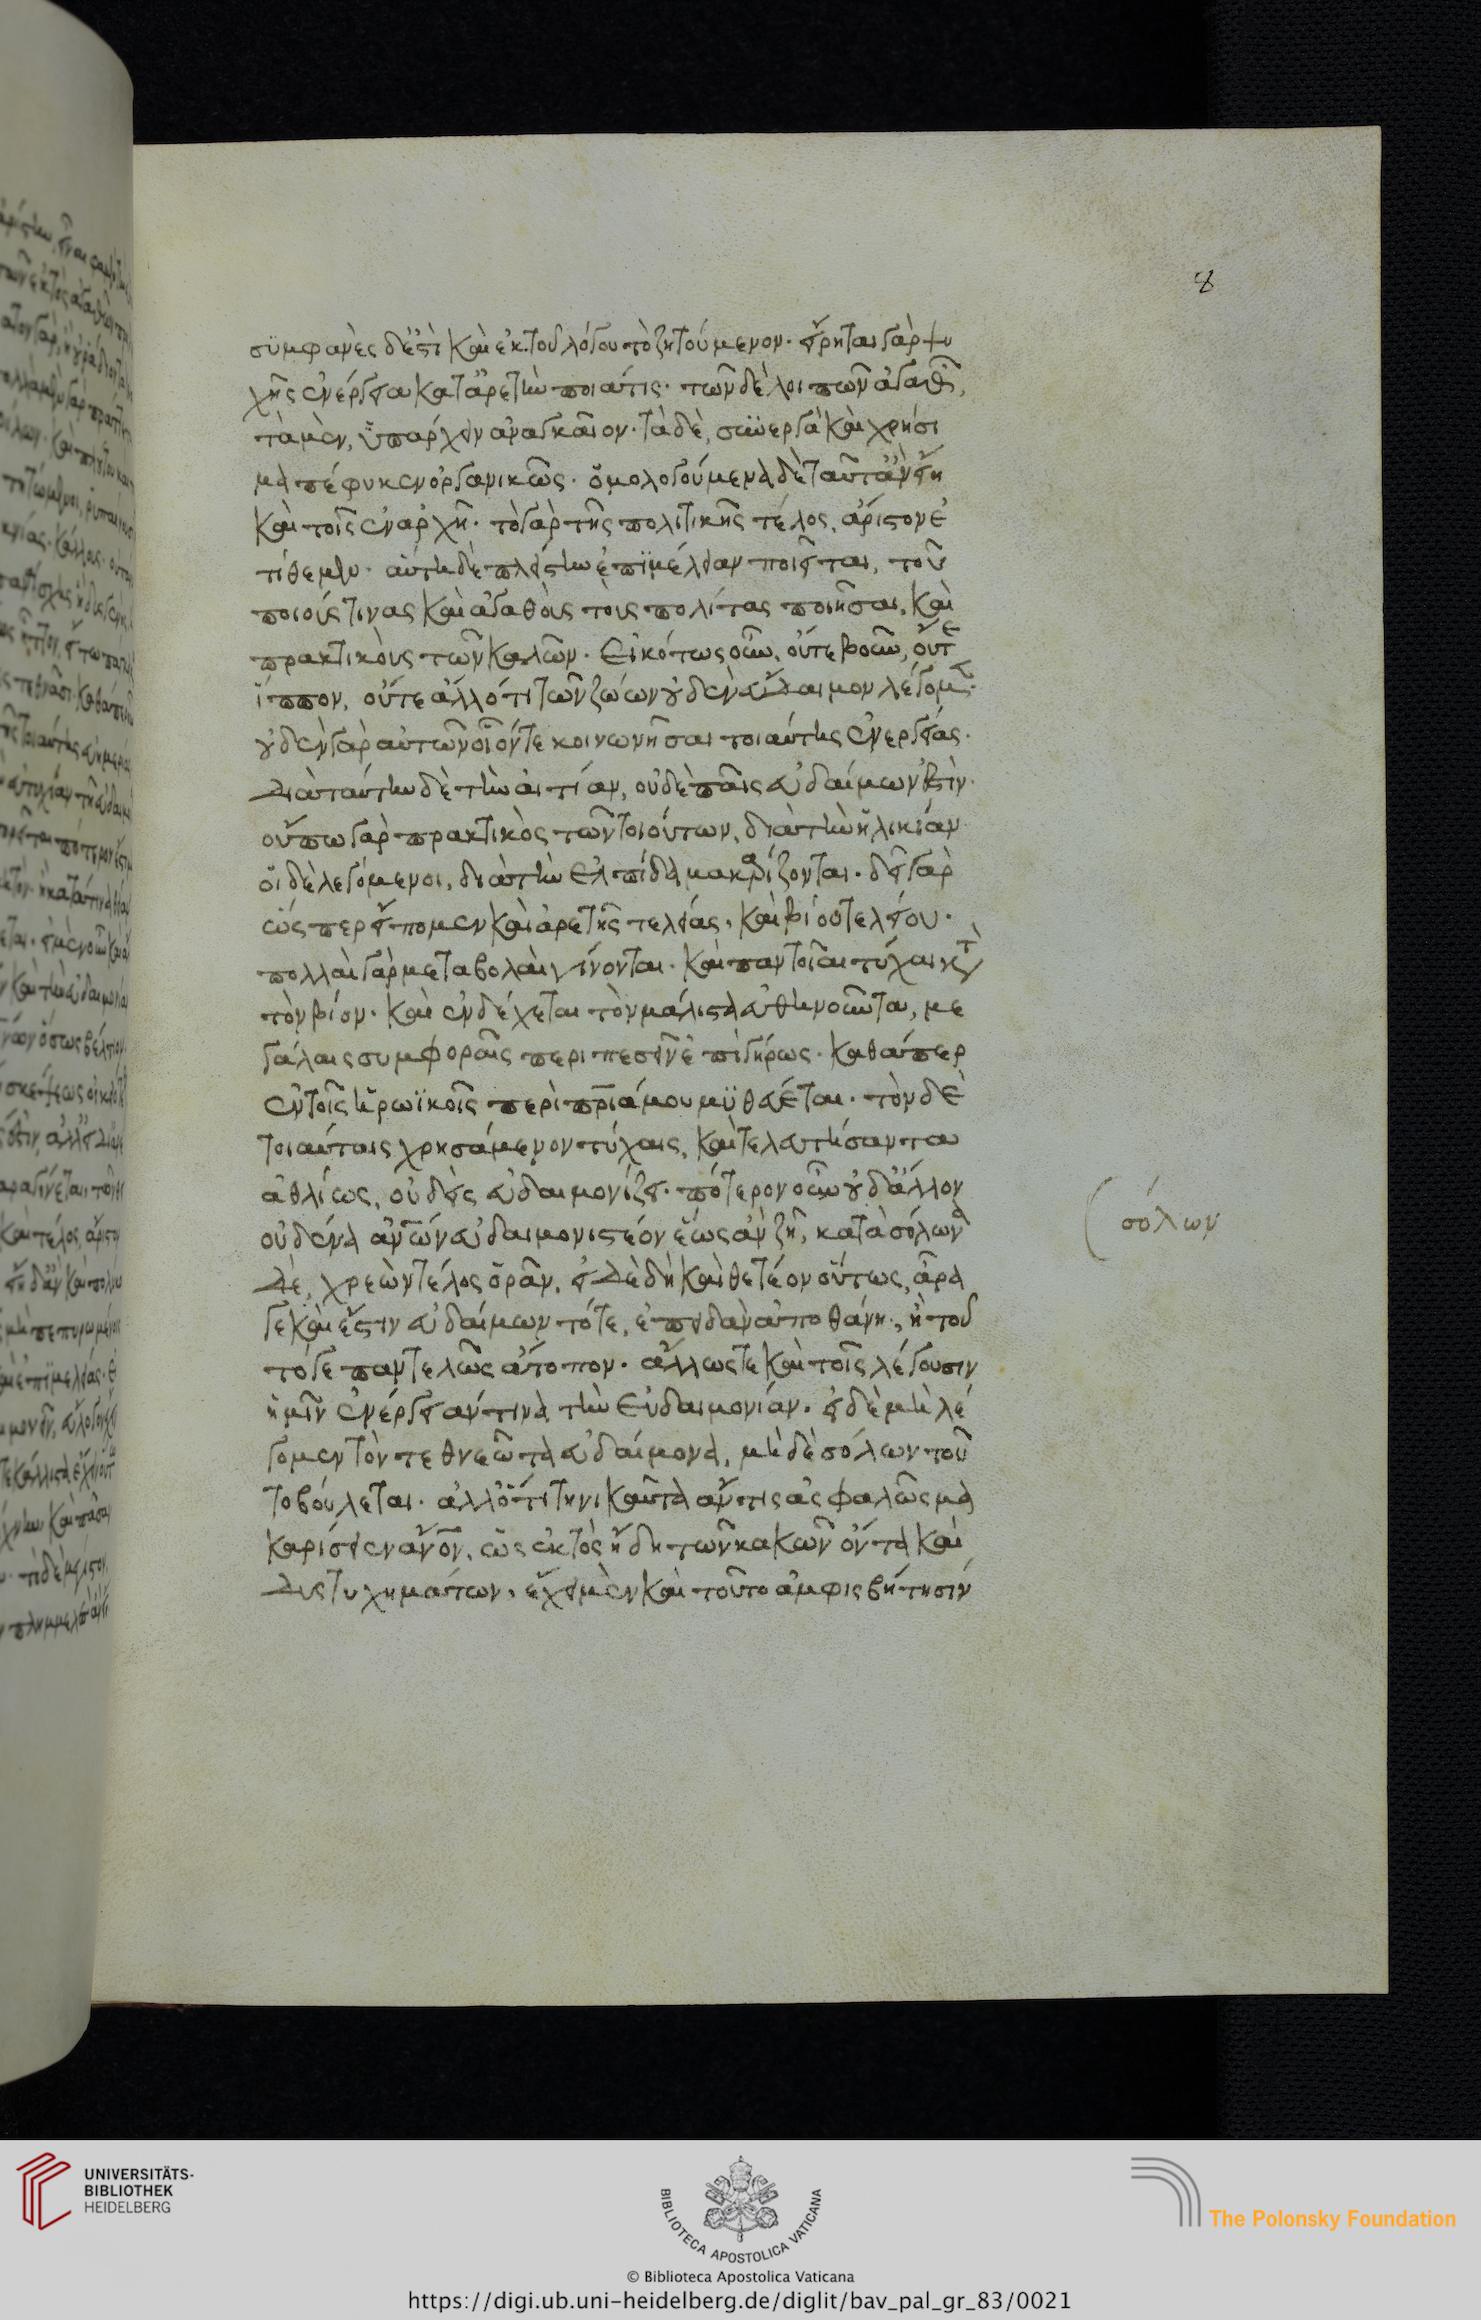 8
συμφανὲς δ' ἐστὶ καὶ ἐκ τοῦ λόγου τὸ ζητούμενον· εἴρηται γὰρ ψυ
χῆς ἐνέργεια κατ' ἀρετὴν ποιά τις· τῶν δὲ λοιπῶν ἀγαθῶν,
τὰ μὲν, ὑπάρχειν ἀναγκαῖον· τὰ δὲ, συνεργὰ καὶ χρήσι
μα πέφυκεν ὀργανικῶς· ὁμολογούμενα δὲ ταῦτ' ἂν εἴη
καὶ τοῖς ἐν ἀρχῇ· τὸ γὰρ τῆς πολιτικῆς τέλος, ἄριστον ἐ
τίθεμεν· αὕτη δὲ πλείστην ἐπιμέλειαν ποιεῖται, τοῦ
ποιούς τινας καὶ ἀγαθοὺς τοὺς πολίτας ποιῆσαι, καὶ
πρακτικοὺς τῶν καλῶν· εἰκότως οὖν, οὔτε βοῦν, οὔτε
ἵππον, οὔτε ἄλλό τι τῶν ζώων οὐδὲν εὔδαιμον λέγομεν·
οὐδὲν γὰρ αὐτῶν οἷόν τε κοινωνῆσαι τοιαύτης ἐνεργείας·
διὰ ταύτην δὲ τὴν αἰτίαν, οὐδὲ παῖς εὐδαίμων ἐστίν·
οὔπω γὰρ πρακτικὸς τῶν τοιούτων, διὰ τὴν ἡλικίαν
οἱ δὲ λεγόμενοι, διὰ τὴν ἐλπίδα μακαρίζονται· δεῖ γὰρ
ὥσπερ εἴπομεν καὶ ἀρετῆς τελείας, καὶ βίου τελείου·
πολλαὶ γὰρ μεταβολαὶ γίνονται· καὶ παντοῖαι τύχαι κατὰ
τὸν βίον· καὶ ἐνδέχεται τὸν μάλιστα εὐθηνοῦντα, με
γάλαις συμφοραῖς περιπεσεῖν ἐπὶ γήρως· καθάπερ
ἐν τοῖς ἡρωϊκοῖς περὶ πριάμου μυθεύεται· τὸν δὲ
τοιαύταις χρησάμενον τύχαις, καὶ τελευτήσαντα
ἀθλίως, οὐδεὶς εὐδαιμονίζει· πότερον οὖν οὐδ' ἄλλον
οὐδένα ἀνθρώπων εὐδαιμονιστέον ἕως ἂν ζῇ, κατὰ σόλωνα
δὲ, χρεὼν τέλος ὁρᾶν, εἰ δὲ δὴ καὶ θετέον οὕτως, ἆρά
γε καὶ ἔστιν εὐδαίμων τότε, ἐπειδὰν ἀποθάνῃ, ἢ τοῦ
τό γε παντελῶς ἄτοπον· ἄλλως τε καὶ τοῖς λέγουσιν
ἡμῖν ἐνέργειάν τινα τὴν εὐδαιμονίαν· εἰ δὲ μὴ λέ
γομεν τὸν τεθνεῶτα εὐδαίμονα, μηδὲ σόλων τοῦ
το βούλεται· ἀλλ' ὅτι τηνικαῦτα ἄν τις ἀσφαλῶς μα
καρίσειεν ἄνθρωπον, ὡς ἐκτὸς ἤδη τῶν κακῶν ὄντα καὶ
δυστυχημάτων, ἔχει μὲν καὶ τοῦτο ἀμφισβήτησίν
σόλων
UNIVERSITÄTS-
BIBLIOTHEK
HEIDELBERG
BIBLIOTECA APOSTOLICA VATICANA
© Biblioteca Apostolica Vaticana
The Polonsky Foundation
https://digi.ub.uni-heidelberg.de/diglit/bav_pal_gr_83/0021